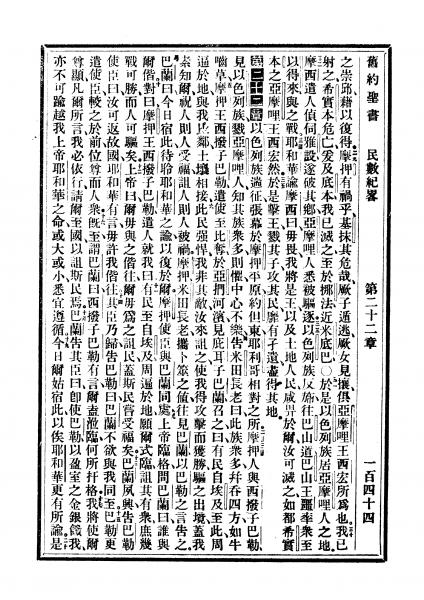 舊約聖書 民數紀畧 第二十二章 一百四十四
之崇邱藉以復得摩押有禍乎基抹其危哉厥子遁逃厥女見攘俱亞摩哩王西宏所爲也我已
射之希實本危亡爰及底本我已滅之至於挪法近米底巴○於是以色列族居亞摩哩人之地
摩西遣人偵伺雅設遂破其鄉亞摩哩人悉被驅逐以色列族反旆往巴山道巴山王率衆至
以得來與之戰耶和華諭摩西曰毋畏我將是王以及土地人民咸畀於爾汝可滅之如都希實
本之亞摩哩王西宏然於是擊王戮其子攻其民靡有孑遺盡得其地
第二十二章 以色列族遄征張幕於摩押平原約但東耶利哥相對之所摩押人與西撥子巴勒
見以色列族戮亞摩哩人知其族衆多則懼中心不樂告米田長老曰此族衆多幷吞四方如牛
嚙草摩押王西撥子巴勒遣使至比奪於亞捫河濱見庇耳子巴蘭召之曰有民自埃及至此周
逼於地與我比鄰土壤相接此民强悍我非其敵汝來詛之使我得攻擊而獲勝驅之出境蓋我
素知爾祝人則人受福詛人則人被禍摩押米田長老攜卜筮之値往見巴蘭以巴勒之言告之
巴蘭曰今日宿此待聆耶和華之諭以復於爾摩押使臣與巴蘭同處上帝臨格問巴蘭曰誰與
爾偕對曰摩押王西撥子巴勒遣人就我曰有民至自埃及周逼於地願爾式臨詛其有衆庶幾
戰可勝而人可驅矣上帝曰爾毋與之偕往爾毋爲之詛民蓋斯民嘗受福矣巴蘭夙興告巴勒
使臣曰汝可返故國耶和華有言毋許我偕往其臣乃歸告巴勒曰巴蘭不欲與我同至巴勒更
遣使臣較之於前位尊而人衆旣至謂巴蘭曰西撥子巴勒有言爾盍涖臨何所扞格我將使爾
尊顯凡爾所言我必依行請爾至國詛斯民焉巴蘭告其臣曰卽使巴勒以盈室之金銀餽我
亦不可踰越我上帝耶和華之命或大或小悉宜遵循今日爾姑宿此以俟耶和華更有所諭是